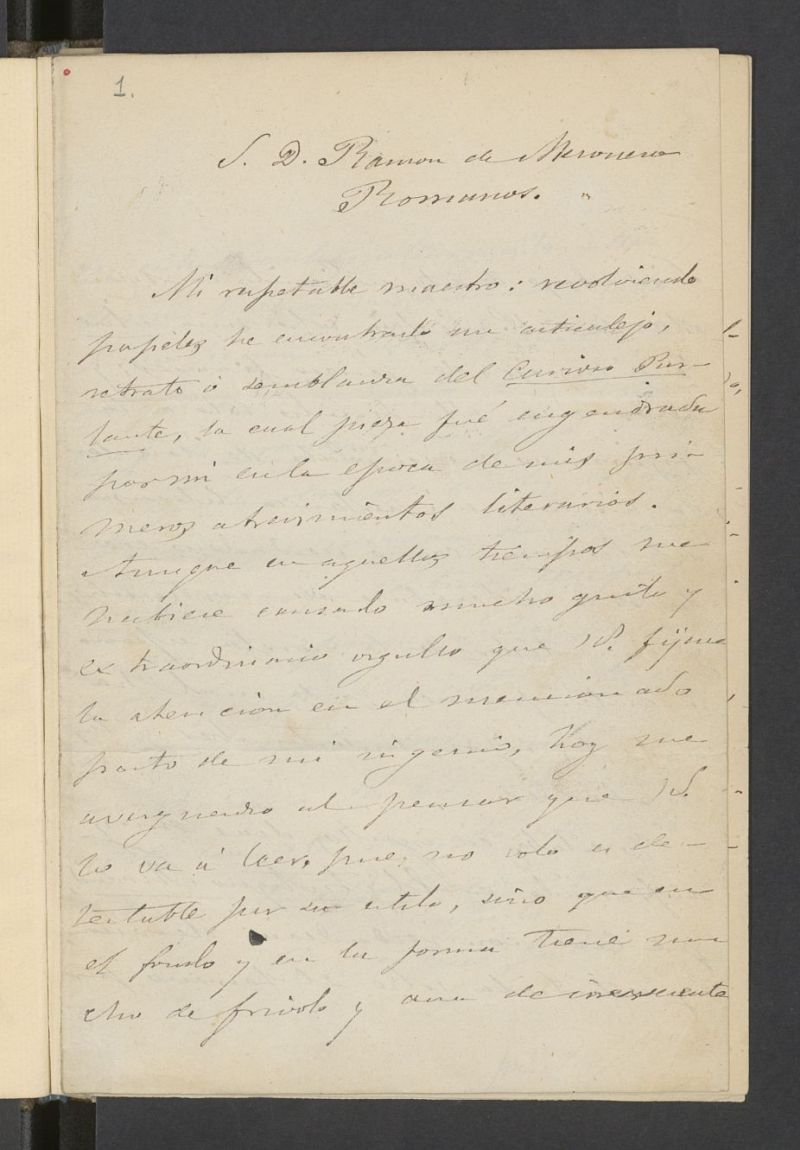 1.
S. D. Ramon de Mesonero
Romanos.
Mi respetable maestro: revolviendo
papeles he encontrado un articulejo,
retrato ó semblanza del Curioso Par-
lante, la cual pieza fué engendrada
por mi en la epoca de mis pri-
meros atrevimientos literarios.
Aunque en aquellos tiempos me
hubiese causado mucho gusto y
extraordinario orgullo que Vd. fijara
la atencion en el mencionado
parto de mi ingenio, hoy me
averguenzo al pensar que Vd.
lo va á leer, pues no solo es de-
testable por su estilo, sino que en
el fondo y en la forma tiene mu
cho de frivolo y aun de irreverente